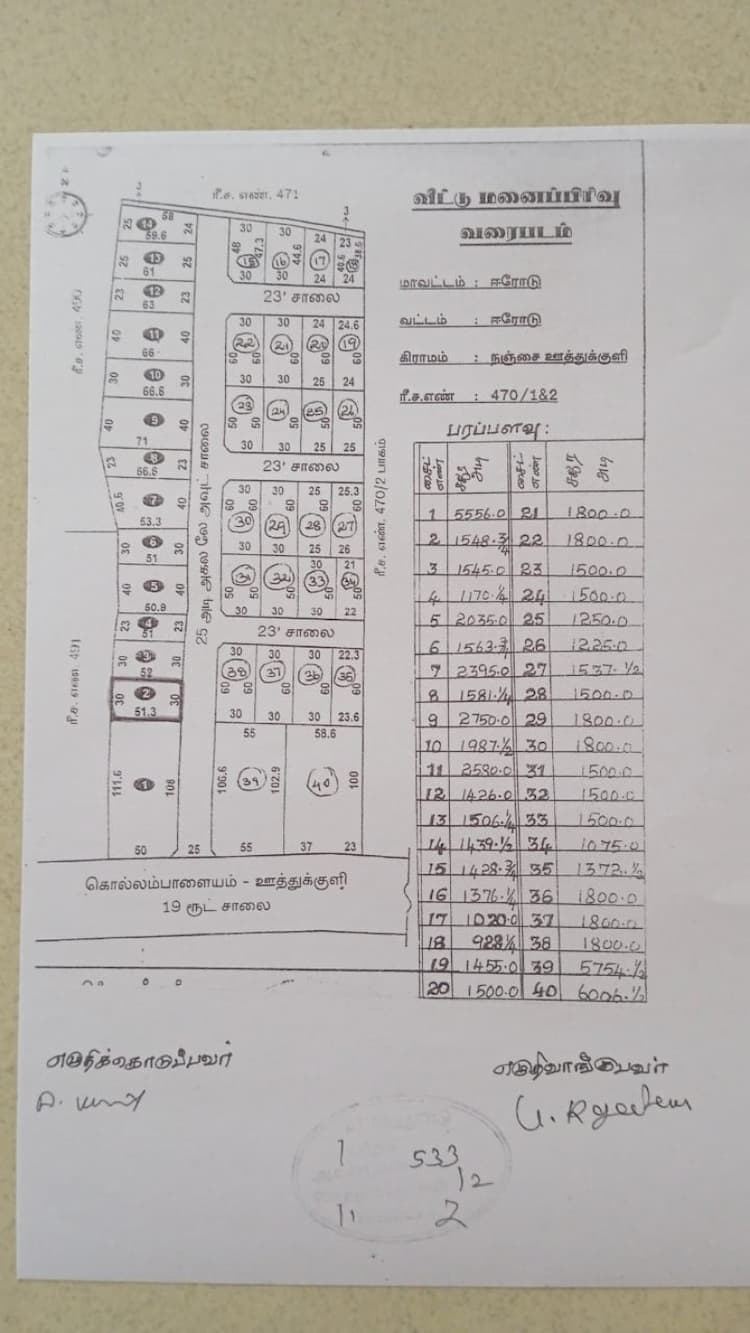 ரீ.ச. எண். 471
வீட்டு மனைப்பிரிவு
வரைபடம்
மாவட்டம் : ஈரோடு
வட்டம் : ஈரோடு
கிராமம் : நஞ்சை ஊத்துக்குளி
ரீ.ச.எண் : 470/1&2
பரப்பளவு :
சைட் எண் சதுர அடி சைட் எண் சதுர அடி
1 5556.0 21 1800.0
2 1548.¾ 22 1800.0
3 1545.0 23 1500.0
4 1170.¼ 24 1500.0
5 2035.0 25 1250.0
6 1563.¾ 26 1225.0
7 2395.0 27 1537.½
8 1581.¼ 28 1500.0
9 2750.0 29 1800.0
10 1987.½ 30 1800.0
11 2580.0 31 1500.0
12 1426.0 32 1500.0
13 1506.¼ 33 1500.0
14 1439.½ 34 1075.0
15 1428.¾ 35 1372.½
16 1376.¼ 36 1800.0
17 1020.0 37 1800.0
18 928¼ 38 1800.0
19 1455.0 39 5754.½
20 1500.0 40 6006.½
25 14 58 24
59.6
25 13 25
61
23 12 23
63
40 11 40
66
30 10 30
66.6
40 9 40
71
23 8 23
66.6
40.6 7 40
53.3
30 6 30
51
40 5 40
50.9
23 4 23
51
30 3 30
52
30 2 30
51.3
111.6 1 108
50 25
ரீ.ச. எண். 491
25 அடி அகல லே அவுட் சாலை
ரீ.ச. எண். 470/2 பாகம்
30 30 24 23
48 15 47.3 16 44.6 17 40.6 38.6
30 30 24 24
23' சாலை
30 30 24 24.6
60 22 60 21 60 20 60 19 60
30 30 25 24
50 23 50 24 50 25 50 26 50
30 30 25 25
23' சாலை
30 30 25 25.3
60 30 60 29 60 28 60 27 60
30 30 25 26
30 21
50 31 50 32 50 33 50 34 50
30 30 30 22
23' சாலை
30 30 30 22.3
60 38 60 37 60 36 60 36 60
30 30 30 23.6
55 58.6
106.6 39 102.9 40 100
55 37 23
கொல்லம்பாளையம் - ஊத்துக்குளி
19 ரூட் சாலை
எழுதிக்கொடுப்பவர்
எழுதிவாங்குபவர்
1 533
12
11 2